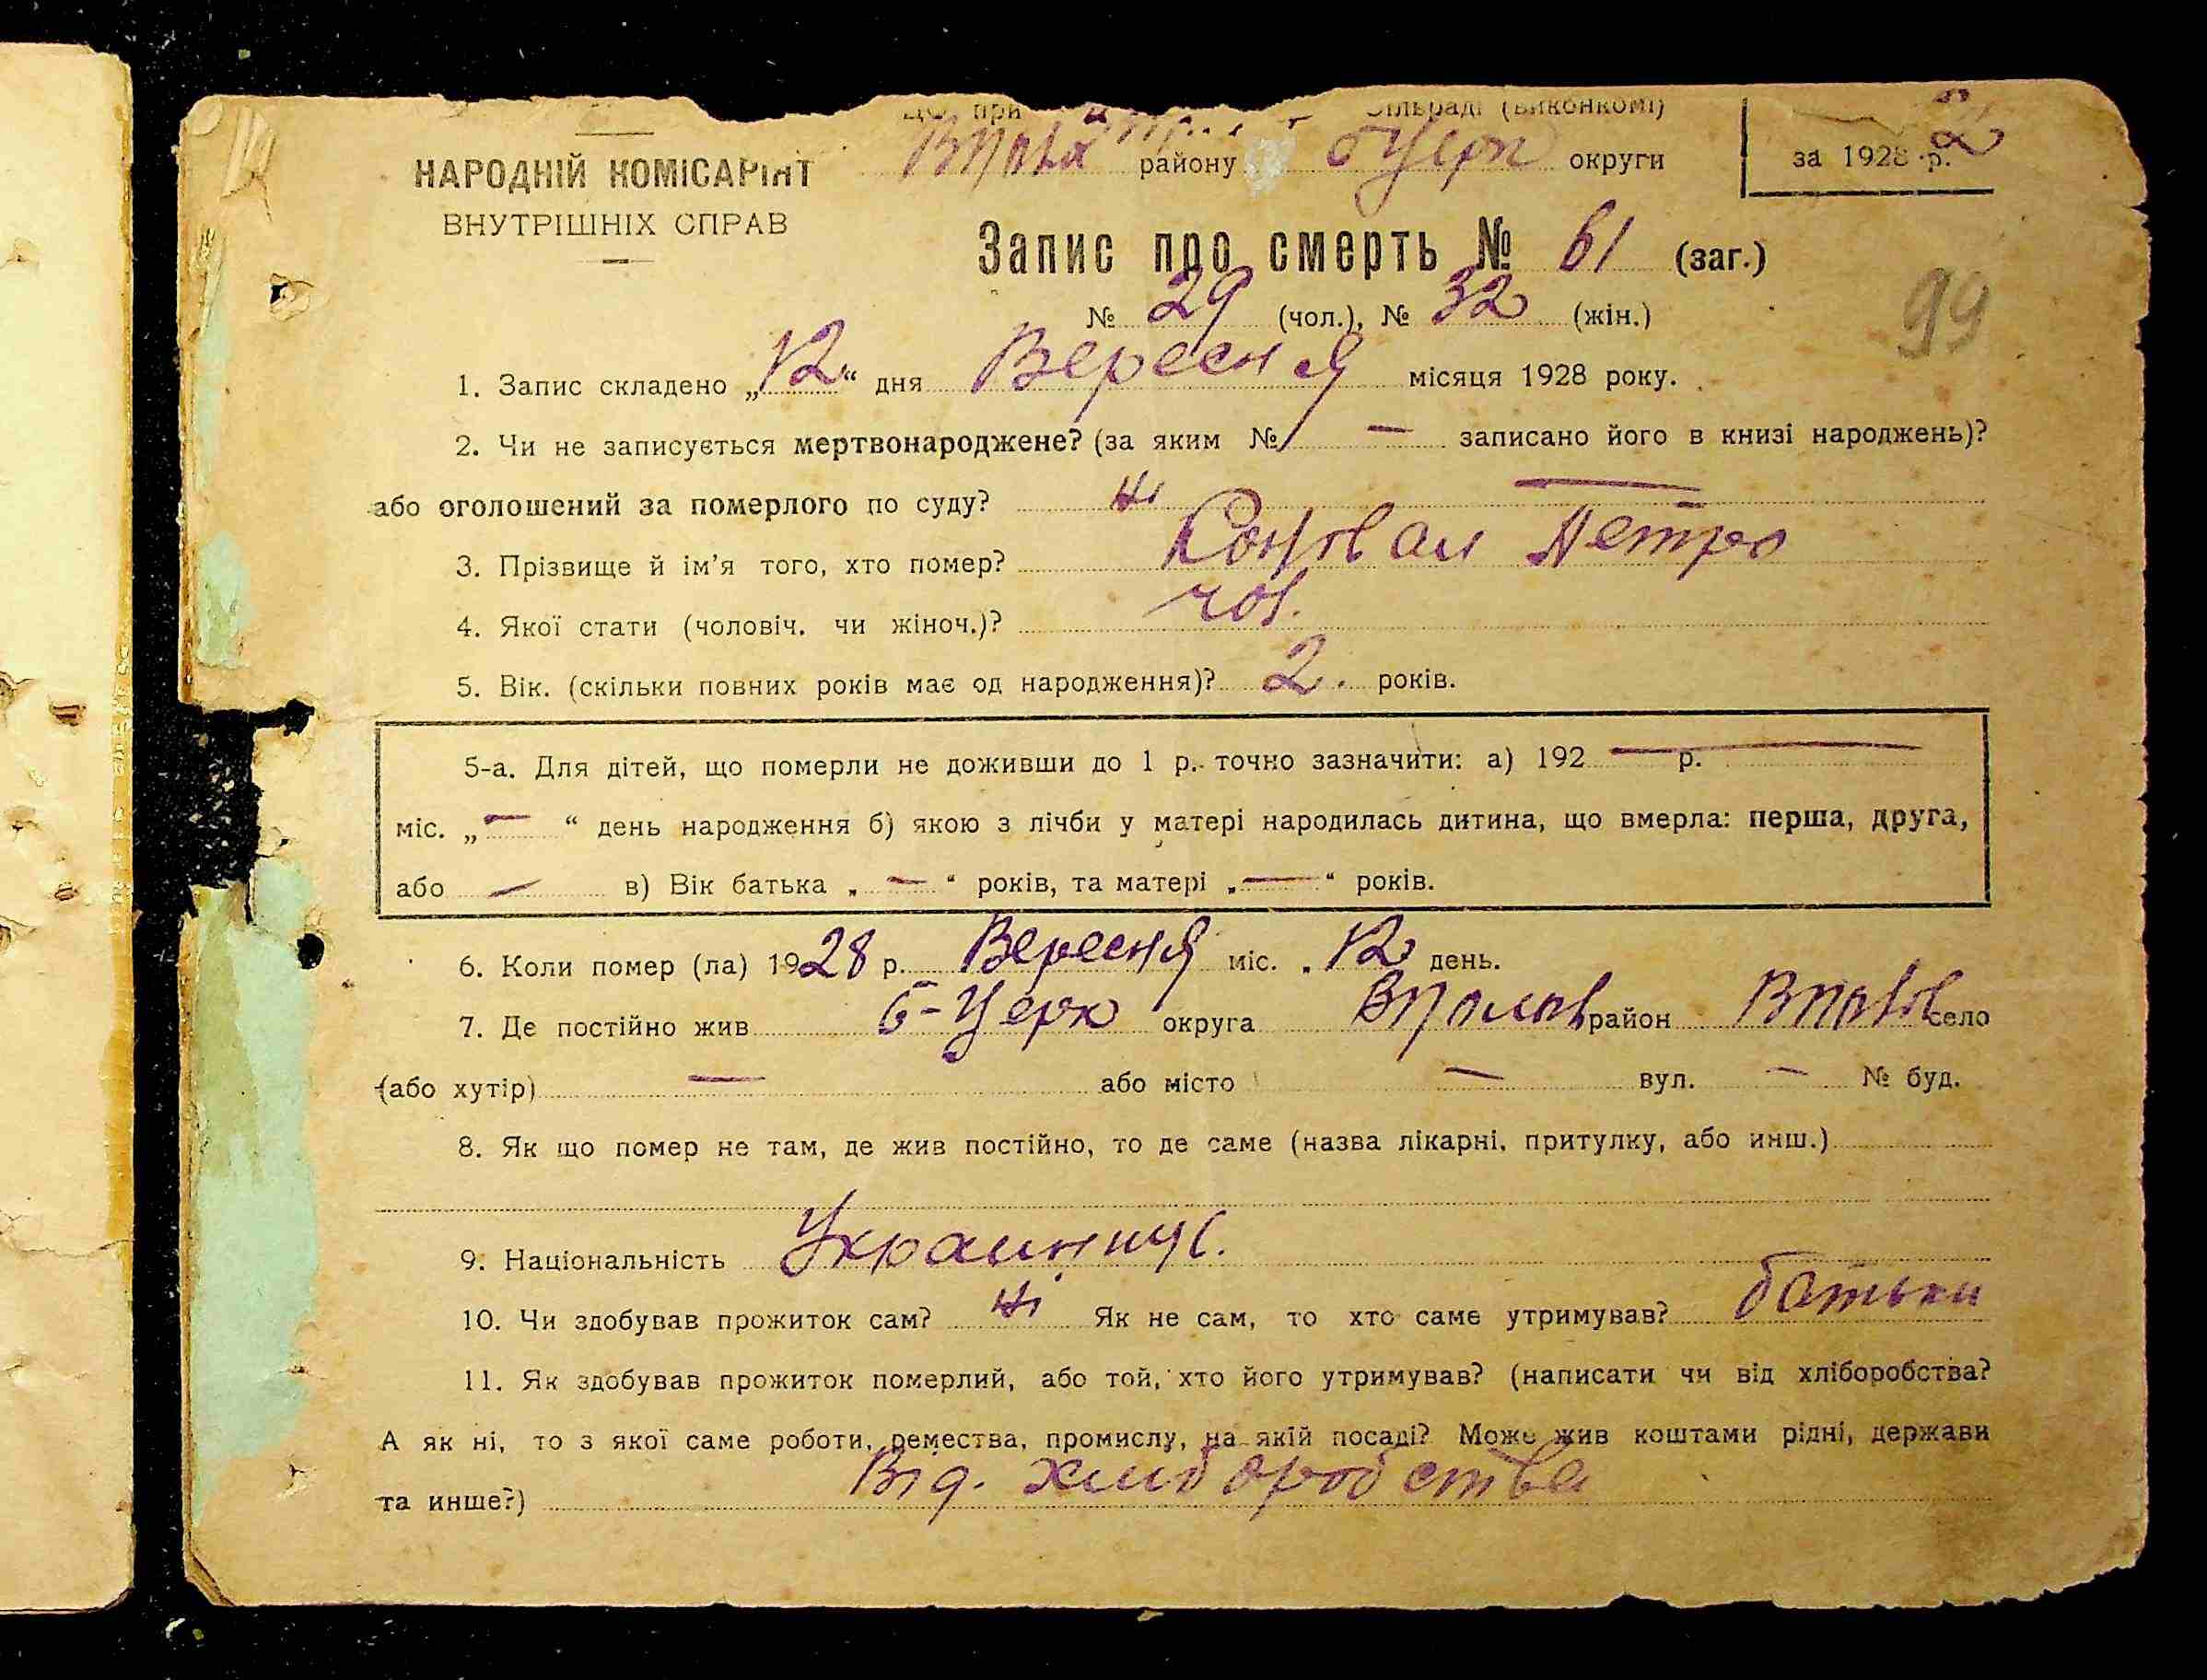 що при сільраді (виконкомі)
НАРОДНІЙ КОМІСАРІЯТ
району Б Церк округи
за 1928 р.
ВНУТРІШНІХ СПРАВ
Запис про смерть № 61 (заг.)
№ 29 (чол.), № 32 (жін.)
99
1. Запис складено „12“ дня Вересня місяця 1928 року.
2. Чи не записується мертвонароджене? (за яким № — записано його в книзі народжень)?
або оголошений за померлого по суду? Ні —
3. Прізвище й ім'я того, хто помер? Петро
4. Якої стати (чоловіч. чи жіноч.)? чол.
5. Вік. (скільки повних років має од народження)? 2. років.
5-а. Для дітей, що померли не доживши до 1 р. точно зазначити: а) 192 — р. —
міс. „—“ день народження б) якою з лічби у матері народилась дитина, що вмерла: перша, друга,
або — в) Вік батька „—“ років, та матері „—“ років.
6. Коли помер (ла) 1928 р. Вересня міс. „12 день.
7. Де постійно жив Б-Церк округа район село
(або хутір) — або місто — вул. — № буд.
8. Як що помер не там, де жив постійно, то де саме (назва лікарні, притулку, або инш.)
9. Національність
10. Чи здобував прожиток сам? Ні Як не сам, то хто саме утримував? батьки
11. Як здобував прожиток померлий, або той, хто його утримував? (написати чи від хліборобства?
А як ні, то з якої саме роботи, ремества, промислу, на якій посаді? Може жив коштами рідні, держави
та инше?) Від. хліборобства